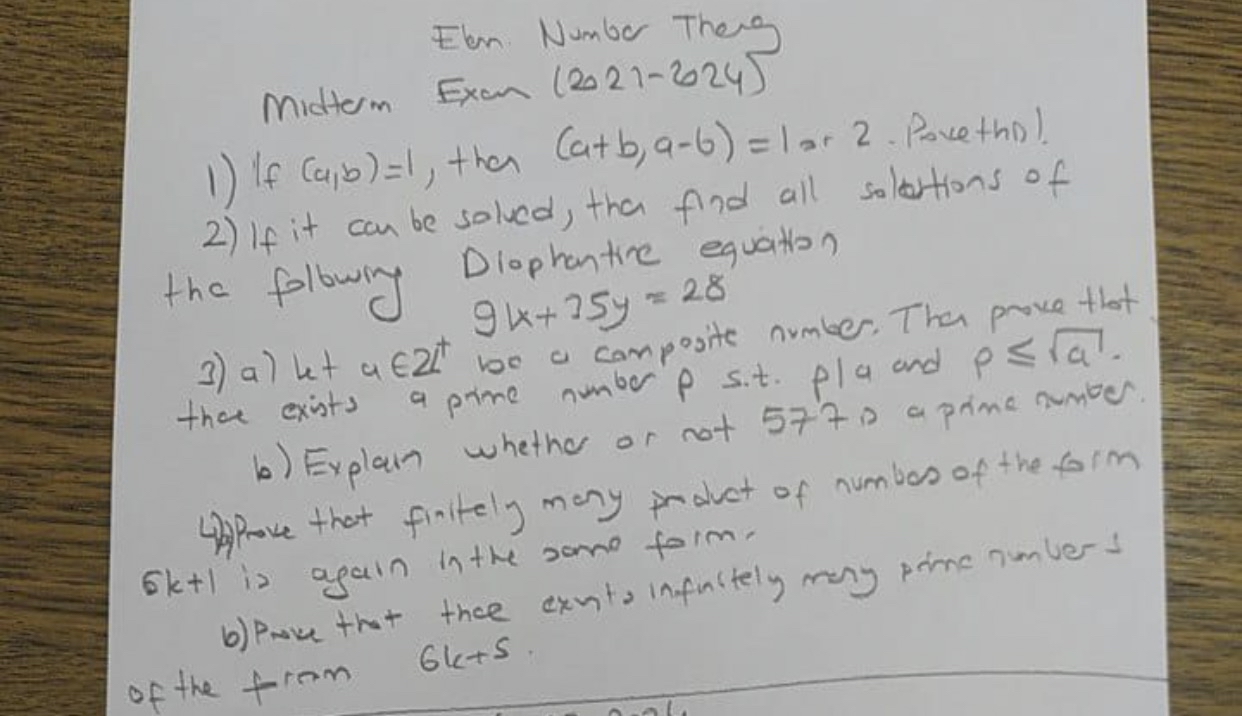 Elem. Number Theory
Midterm Exam (2021-2024)
1) If (a,b)=1, then (a+b, a-b) = 1 or 2. Prove this!
2) If it can be solved, then find all solutions of
the following Diophantine equation
91x+35y = 28
3) a) Let a ∈ Z⁺ be a composite number. Then prove that
there exists a prime number p s.t. p|a and p ≤ √a.
b) Explain whether or not 577 is a prime number.
4) a) Prove that finitely many product of numbers of the form
6k+1 is again in the same form.
b) Prove that there exists infinitely many prime numbers
of the from 6k+5.